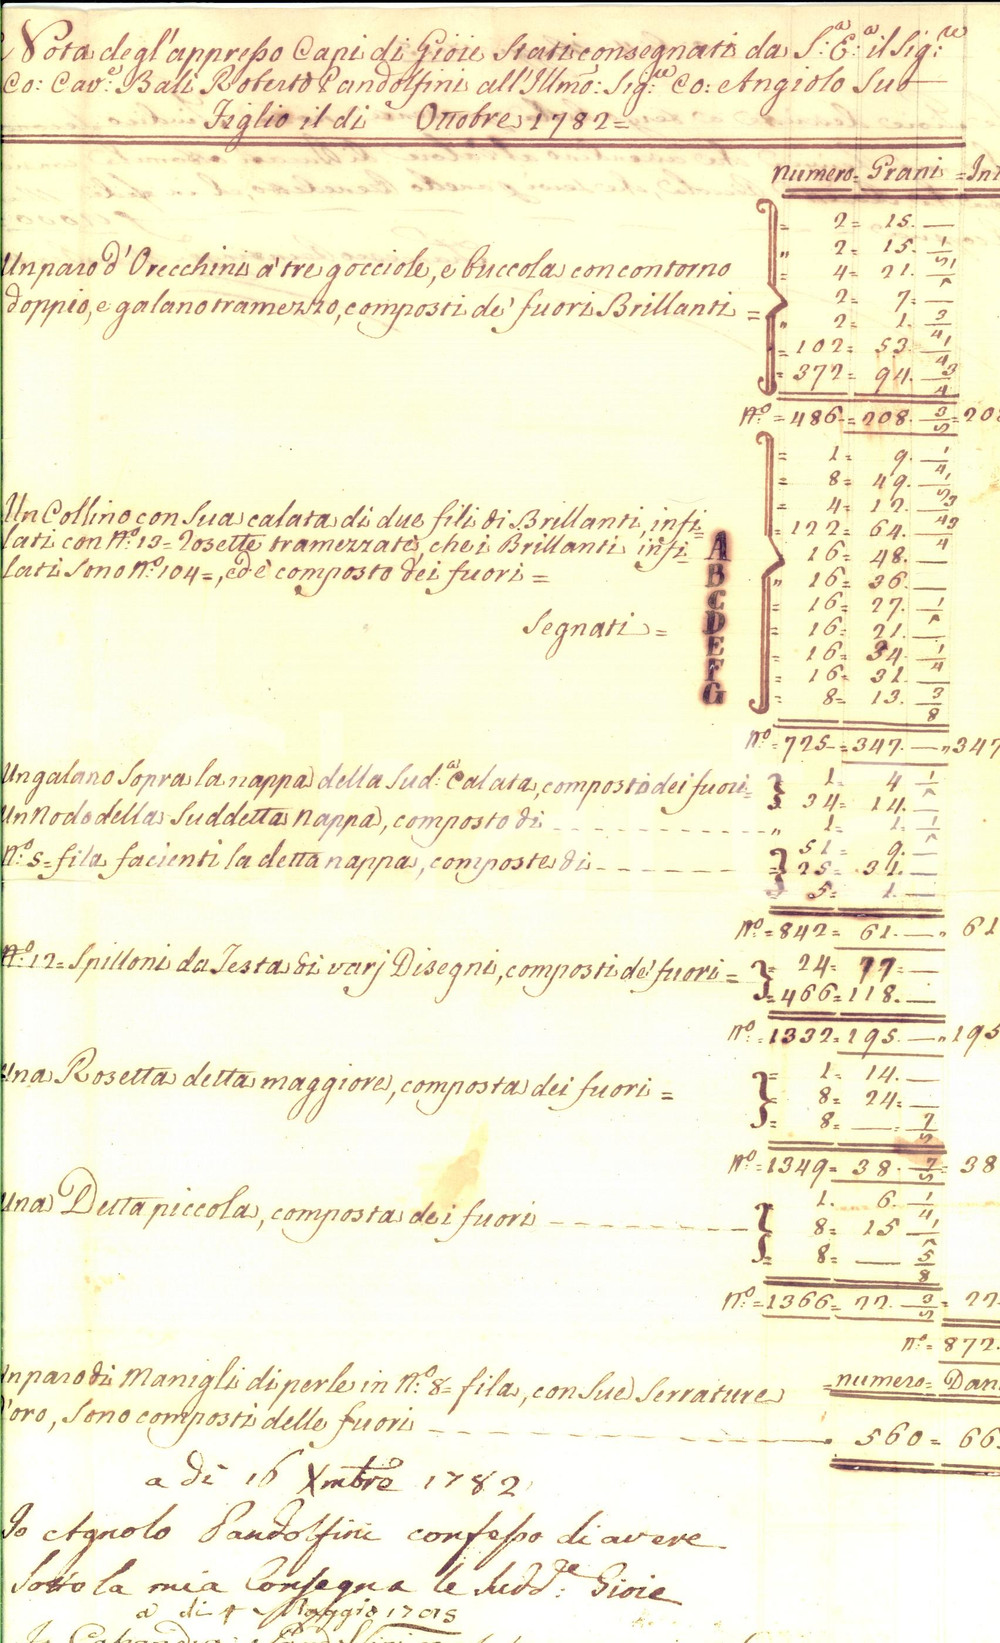 Nota degl'appresso Capi di Gioie Stati consegnati da S:ª E:ª il Sig:re
Co: Cav:e Balì Roberto Pandolfini all'Illmo: Sig:re Co: Angiolo Suo
Figlio il dì Ottobre 1782=
numero= Grani =
Un paro d'Orecchini a' tre gocciole, e buccola con contorno
doppio, e galano tramezzo, composti de' fuori Brillanti =
2= 15. —
2= 15.
4= 21.
2= 7. —
2= 1. 3/4
102= 53. 1/4
372= 94. 3/4
N:o = 486 = 208.
Un Collino con sua calata di due fili di Brillanti, infi=
lati con N:o 13= Rosette tramezzate, che i Brillanti infi=
lati sono N:o 104=, ed è composto dei fuori =
Segnati =
A
B
C
D
E
F
G
1= 9. 1/4
8= 49.
4= 12.
122= 64.
16= 48. —
16= 36. —
16= 27.
16= 21. —
16= 34. 1/4
16= 31. —
8= 13. 3/8
N:o = 725 = 347. — = 347
Un galano sopra la nappa della Sud:ª Calata, composto dei fuori=
1= 4
34= 14. —
Un Nodo della Suddetta Nappa, composto di
1= 1.
N:o 5= fila facienti la detta nappa, composte di
51= 9. —
25= 31. —
5= 1. —
N:o = 842= 61. — = 61
N:o 12= Spilloni da Testa di varj Disegni, composti de' fuori =
24= 77= —
= 466= 118. —
N:o = 1332= 195. — = 195
Una Rosetta detta maggiore, composta dei fuori =
1= 14. —
8= 24= —
8= —
N:o = 1349= 38. = 38
Una Detta piccola, composta dei fuori
1. 6. 1/4
8= 15
8= — 5/8
N:o = 1366= 22. = 22
N:o = 872.
paro di Manigli di perle in N:o 8= fila, con sue Serrature
d'oro, sono composti delle fuori
= numero=
560= 66
a dì 16 Xmbre 1782
Io Agnolo Pandolfini confesso di avere
Sotto la mia Consegna le Sudd:e Gioie
a dì Maggio